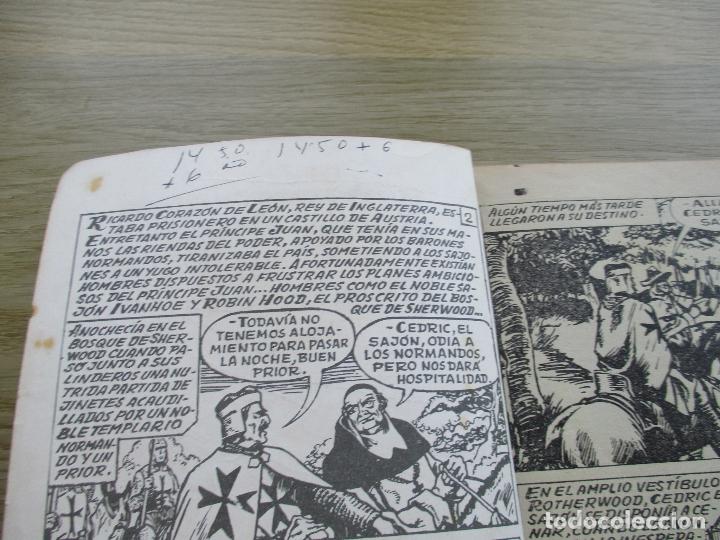 14 50. 1450 + 6
+ 6
RICARDO CORAZÓN DE LEÓN, REY DE INGLATERRA, ES-
TABA PRISIONERO EN UN CASTILLO DE AUSTRIA.
ENTRETANTO EL PRÍNCIPE JUAN, QUE TENÍA EN SUS MA-
NOS LAS RIENDAS DEL PODER, APOYADO POR LOS BARONES
NORMANDOS, TIRANIZABA EL PAÍS, SOMETIENDO A LOS SAJO-
NES A UN YUGO INTOLERABLE. AFORTUNADAMENTE EXISTÍAN
HOMBRES DISPUESTOS A FRUSTRAR LOS PLANES AMBICIO-
SOS DEL PRÍNCIPE JUAN... HOMBRES COMO EL NOBLE SA-
JÓN IVANHOE Y ROBIN HOOD, EL PROSCRITO DEL BOS-
QUE DE SHERWOOD...
2
ANOCHECÍA EN EL
BOSQUE DE SHER-
WOOD CUANDO PA-
SÓ JUNTO A SUS
LINDEROS UNA NU-
TRIDA PARTIDA DE
JINETES ACAUDI-
LLADOS POR UN NO-
BLE TEMPLARIO
NORMAN-
DO Y UN
PRIOR.
-TODAVÍA NO
TENEMOS ALOJA-
MIENTO PARA PASAR
LA NOCHE, BUEN
PRIOR.
-CEDRIC, EL
SAJÓN, ODIA A
LOS NORMANDOS,
PERO NOS DARÁ
HOSPITALIDAD.
ALGÚN TIEMPO MÁS TARDE
LLEGARON A SU DESTINO.
CEDRIC
SA
EN EL AMPLIO VESTÍBULO
ROTHERWOOD, CEDRIC E
SE DISPONÍA A CE-
NAR, CUANDO
INESPERA-
todocoleccion.net